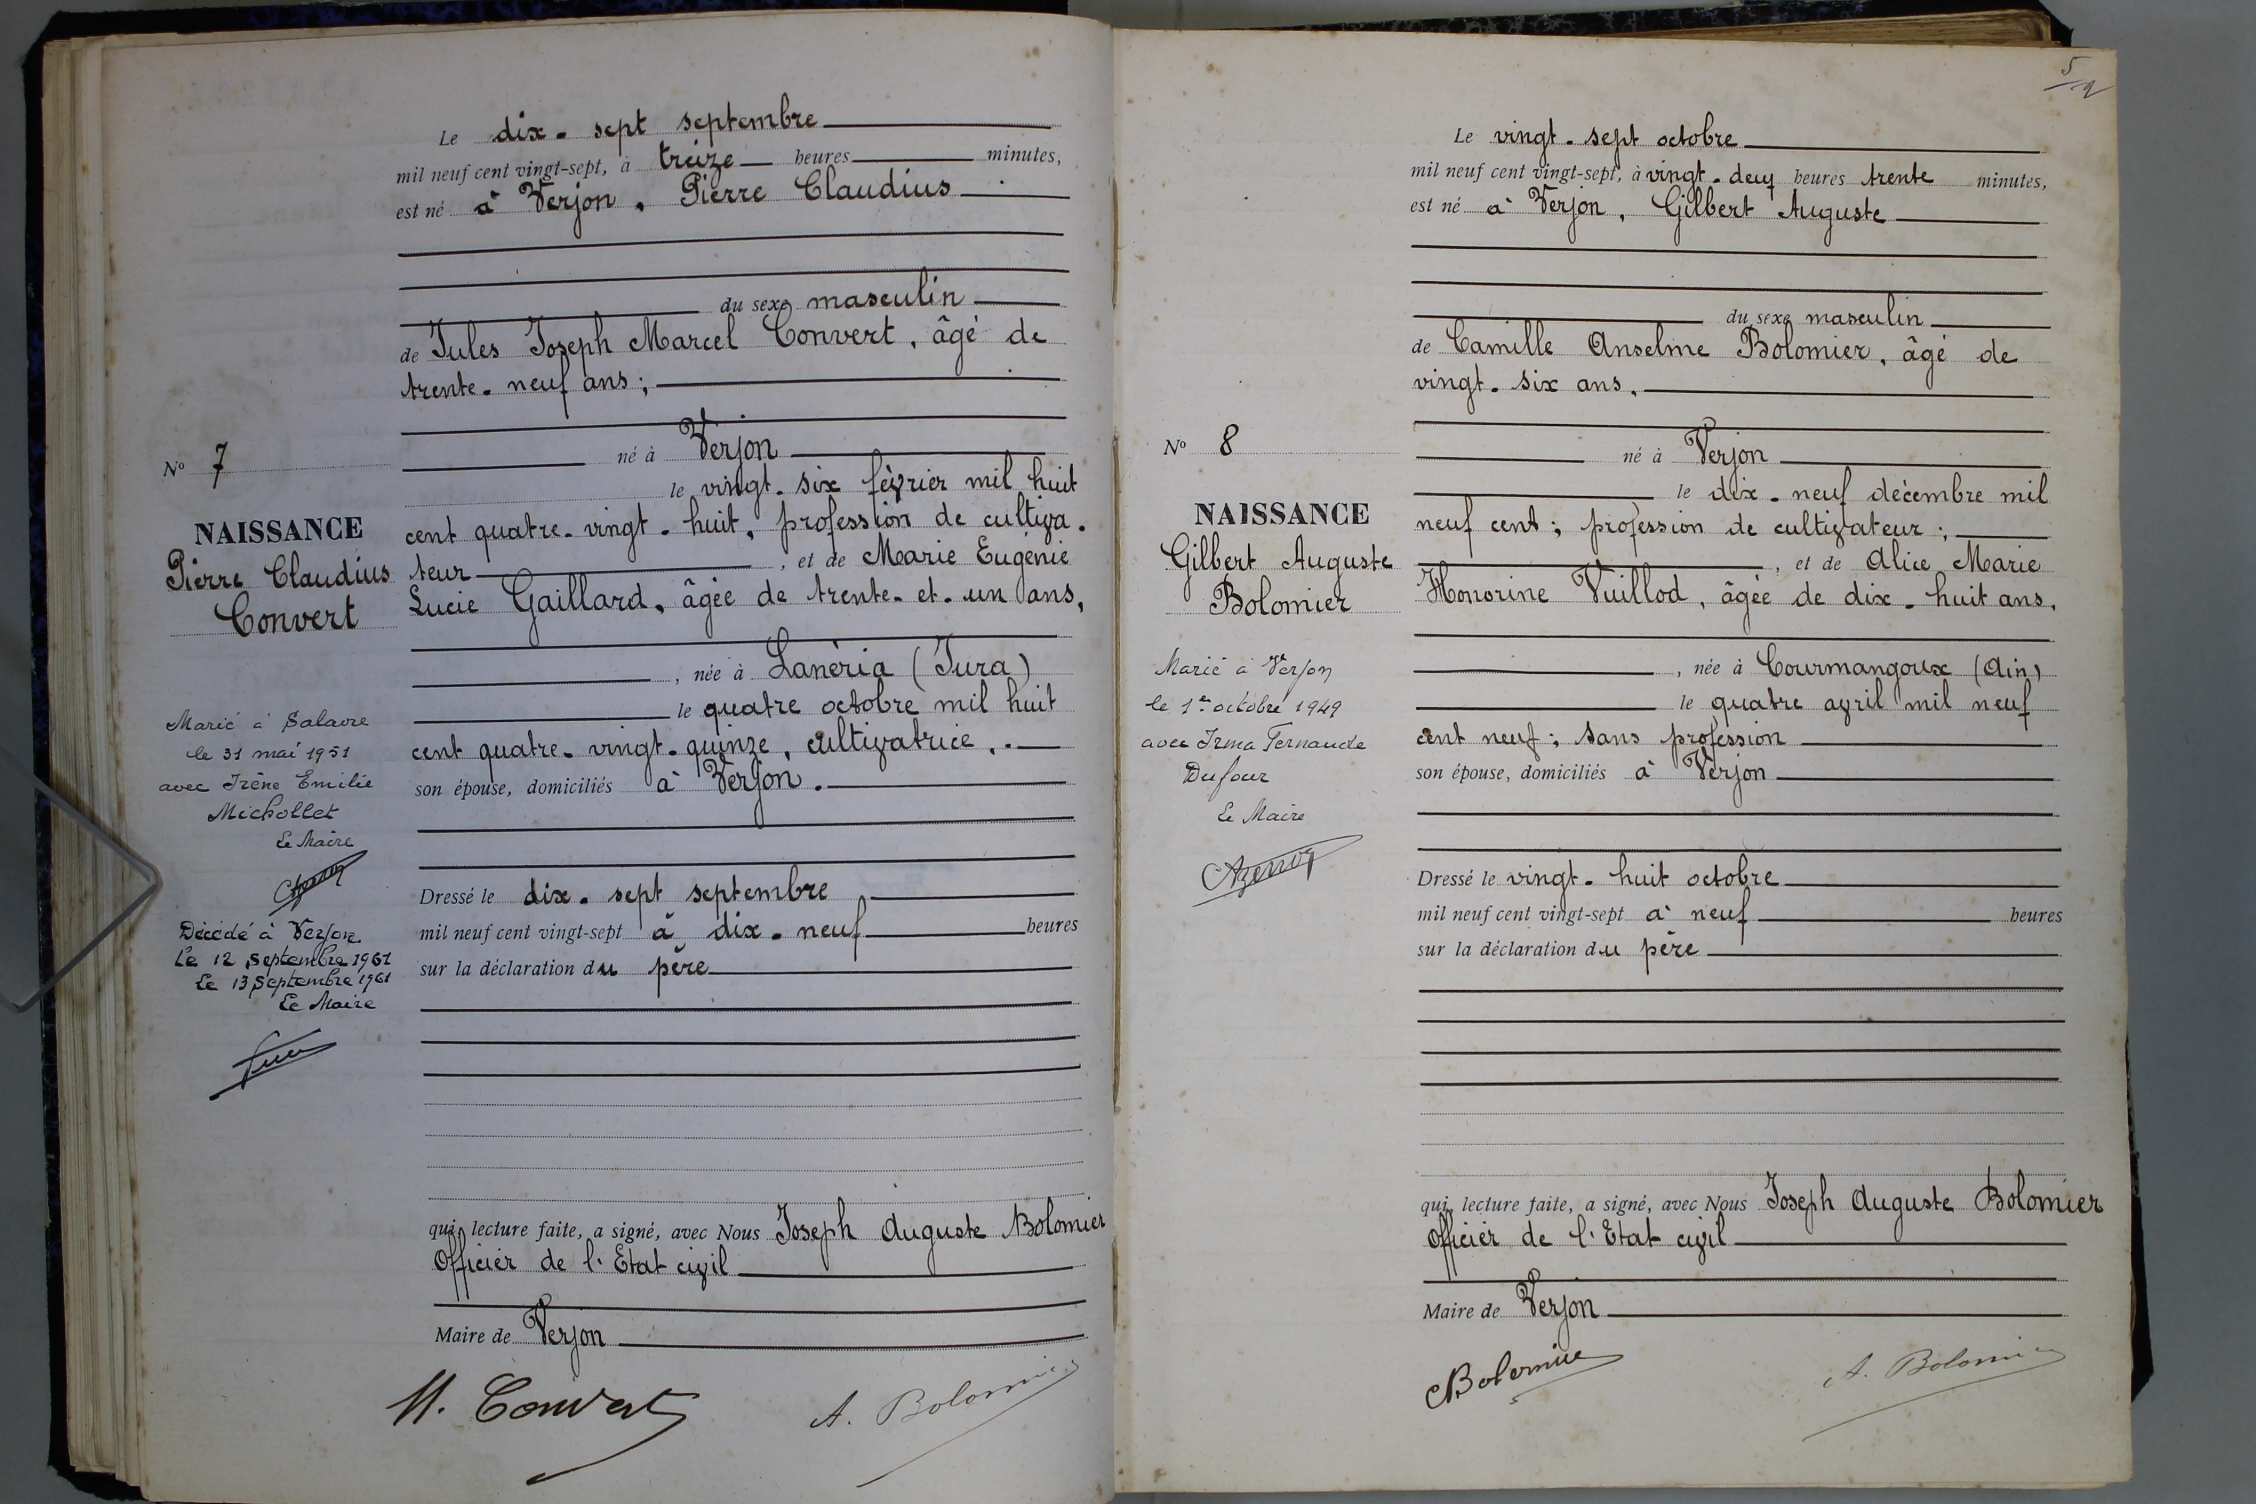 Le dix-sept septembre
mil neuf cent vingt-sept, à treize heures minutes,
est né à Verjon, Pierre Claudius
du sexe masculin
de Jules Joseph Marcel Convert, âgé de
trente-neuf ans;
né à Verjon
le vingt-six février mil huit
cent quatre-vingt-huit, profession de cultiva-
teur, et de Marie Eugénie
Lucie Gaillard, âgée de trente-et-un ans,
, née à Lanèria (Jura)
le quatre octobre mil huit
cent quatre-vingt-quinze, cultivatrice,
son épouse, domiciliés à Verjon.
Dressé le dix-sept septembre
mil neuf cent vingt-sept à dix-neuf heures
sur la déclaration du père
qui, lecture faite, a signé, avec Nous Joseph Auguste Bolomier
Officier de l'Etat civil
Maire de Verjon
M. Convert
A. Bolomier
No 7
NAISSANCE
Pierre Claudius
Convert
Marié à Salavre
le 31 mai 1951
avec Irène Emilie
Michollet
Le Maire
Décédé à Verjon
Le 12 septembre 1961
Le 13 septembre 1961
Le Maire
5
Le vingt-sept octobre
mil neuf cent vingt-sept, à vingt-deux heures trente minutes,
est né à Verjon, Gilbert Auguste
du sexe masculin
de Camille Anselme Bolomier, âgé de
vingt-six ans,
né à Verjon
le dix-neuf décembre mil
neuf cent; profession de cultivateur;
, et de Alice Marie
Honorine Vuillod, âgée de dix-huit ans,
, née à Courmangoux (Ain)
le quatre avril mil neuf
cent neuf; sans profession
son épouse, domiciliés à Verjon
Dressé le vingt-huit octobre
mil neuf cent vingt-sept à neuf heures
sur la déclaration du père
qui, lecture faite, a signé, avec Nous Joseph Auguste Bolomier
Officier de l'Etat civil
Maire de Verjon
Bolomier
A. Bolomier
No 8
NAISSANCE
Gilbert Auguste
Bolomier
Marié à Verjon
le 1er octobre 1949
avec Irma Fernande
Dufour
Le Maire